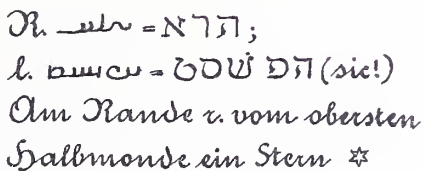 R. = הרא ;
l. = הפ שׁסט (sic!)
Am Rande r. vom obersten
Halbmonde ein Stern ✡